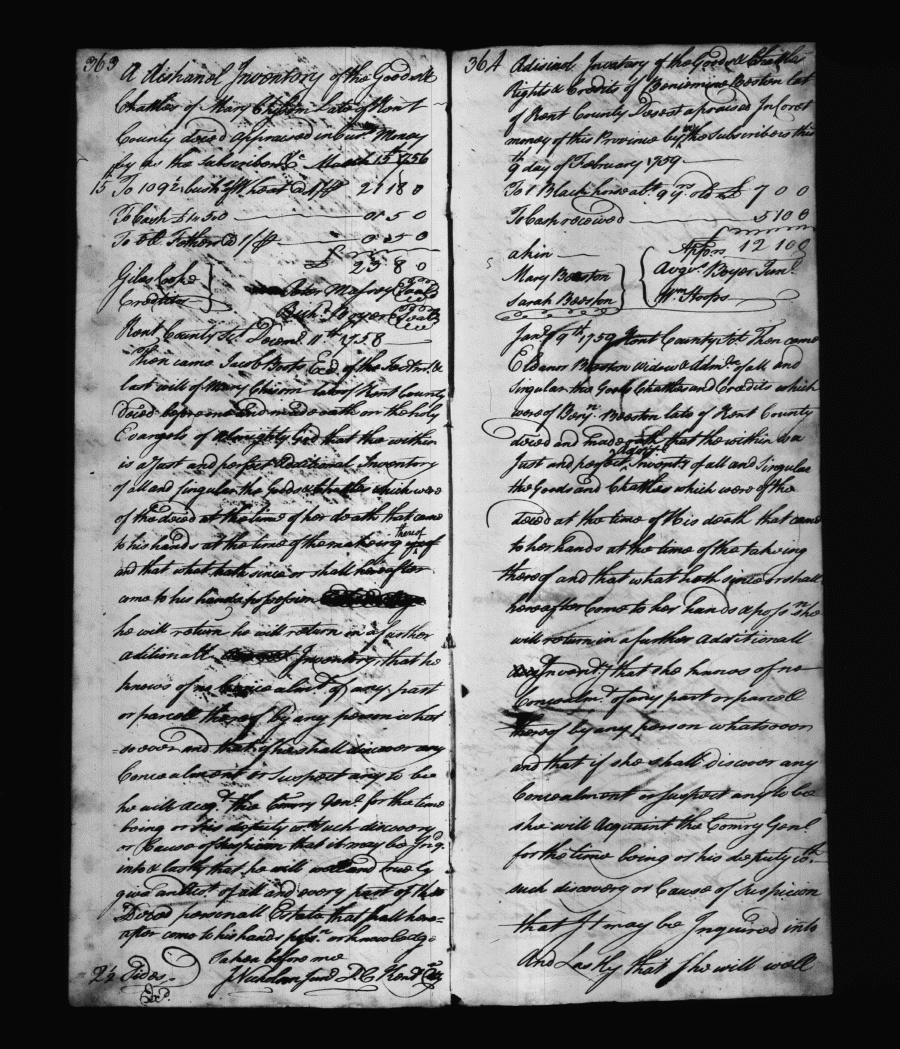 363
A dishanel Inventory of the Goods &
Chattles of Mary Chism late of Kent
County deced appraised in Curt Money
by us the Subscribers &c March 15th 1756
15 To 109½ bush Wheat @ 4/ 21 18 0
To Cash 01 5 0
To Fethers @ 1/ 0 5 0
£ 23 8 0
Giles Cooke
Creditors
Seal
Boyer Seal
Kent County Sc. Decem. 11th 1758
Then came Jacob Exd. of the &
last will of Mary Chism late of Kent County
Deced before me and made oath on the holy
Evangels of Almighty God that the within
is a Just and perfect Additional Inventory
of all and singular the Goods & Chattles which were
of the deced at the time of her death that came
to his hands at the time of the makeing thereof
and that what hath since or shall hereafter
come to his hands possession
he will return he will return in a further
aditionall Inventory, that he
knows of no concealmt. of any part
or parcell thereof by any person what
=soever and that if he shall discover any
Concealment or Suspect any to be
he will acqt. the Comry Genl. for the time
being or his deputy wth such discovery
or Cause of Suspicion that it may be Inqd.
into & lastly that he will well and truely
give an acct. of all and every part of the
Deced personall Estate that shall here=
after come to his hands possn. or knowledge
Taken before me
2½ Sides
Exd.
364 Adisinel Inventary of the Goods & Chattles
Rights & Credits of Beniemine Beeston late
of Kent County Desest apraised In Coret
money of this Province by the Subscribers this
th
9 day of February 1759
To 1 Black horse abt. 9 yrs old at £ 7 0 0
To Cash received 5 10 0
Apprs 12 10 0
akin
Mary Beeston
Sarah Beeston
Augn. Boyer Junr.
Wm Hoops
Jany 9th 1759 Kent County Sc Then came
Eleanor Beeston widow & Adme. of all and
Singular the Goods Chattles and Credits which
were of Benjn. Beeston late of Kent County
deced and made oath that the within is a
Just and perfect Inventy of all and Singular
the Goods and Chattles which were of the
deced at the time of His death that came
to her hands at the time of the takeing
thereof and that what hath since or shall
hereafter Come to her hands & possn she
will return in a further additionall
Invent. that she knows of no
Concealmt. of any part or parcell
thereof by any person whatsoever
and that if she shall discover any
Concealment or suspect any to be
she will Acquaint the Comry Genl.
for the time being or his deputy wth.
such discovery or Cause of Suspicion
that It may be Inquired into
And Lastly that She will well